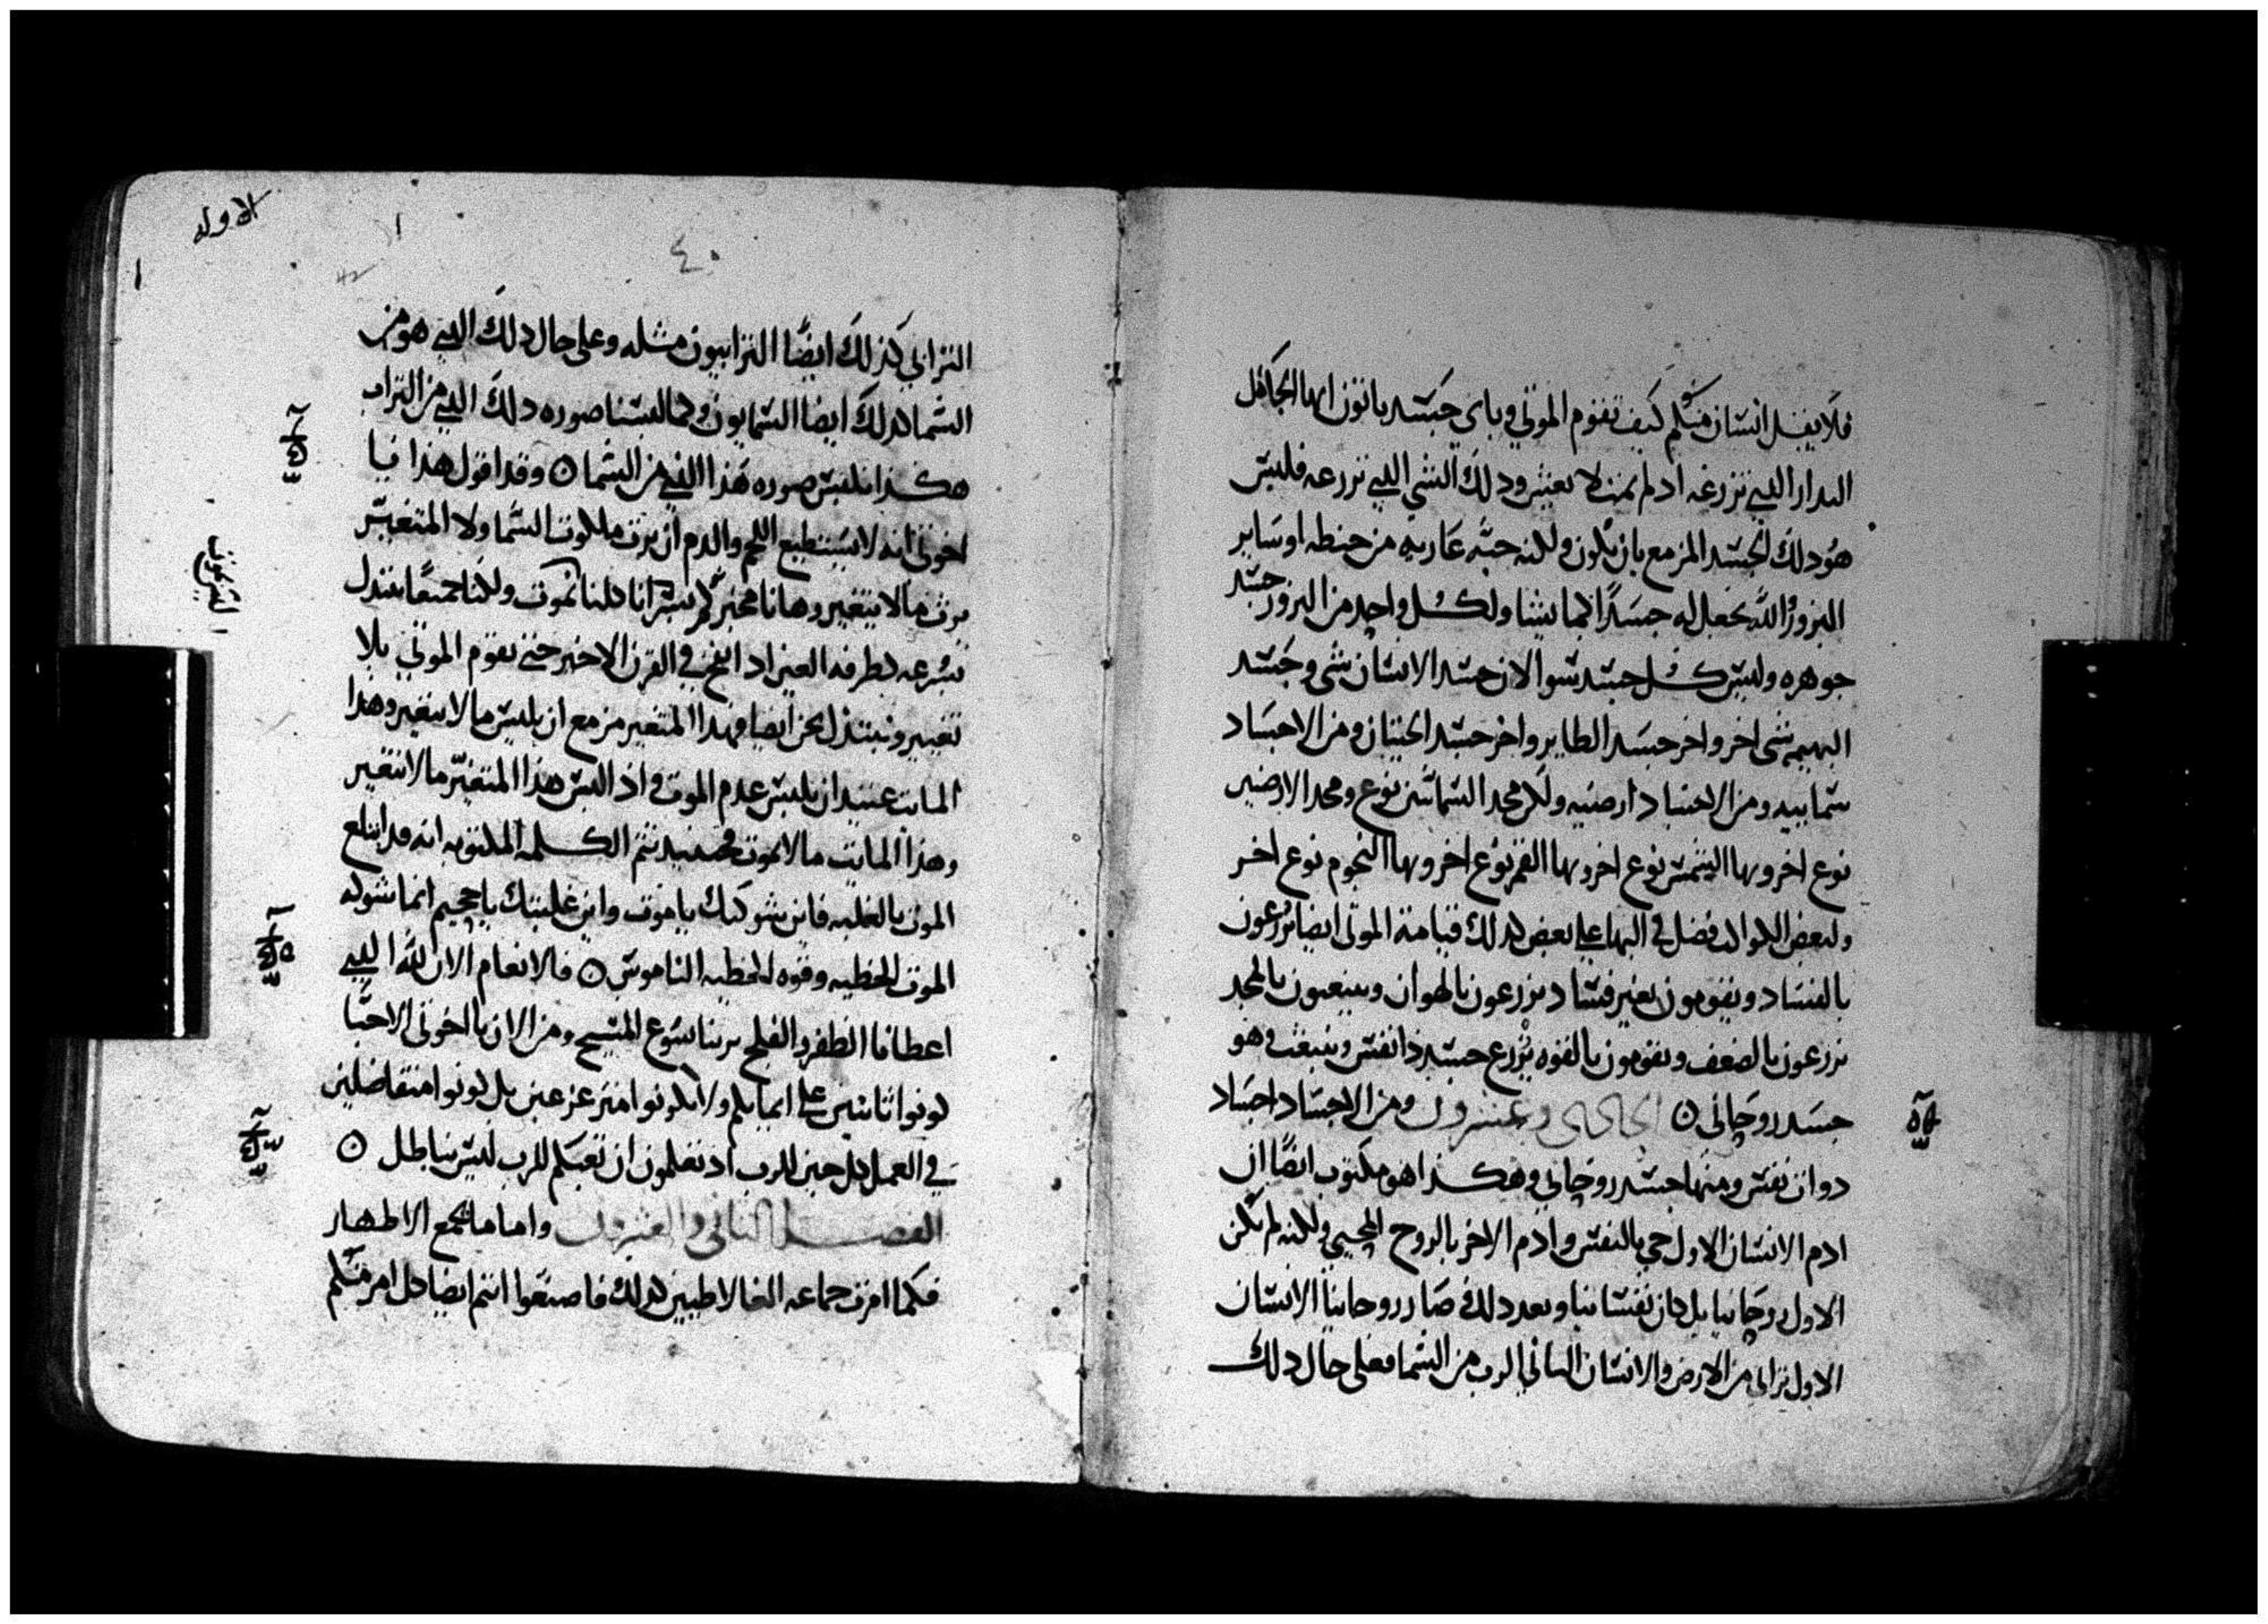 فلا يقل انسان منكم كيف تقوم الموتى وباى جسد ياتون ايها الجاهل
البدار الدى تزرعه ادلم يمت لا يعيش ودلك الشى الدى تزرعه فليس
هو دلك الجسد المزمع بان يكون ولكنه حبه عاريه من حنطه او ساير
البزور والله يجعل له جسدًا كما يشا ولكل واحد من البزور جسد
جوهره وليس كل جسد سوا لان جسد الانسان شى وجسد
البهيمه شى اخر واخر جسد الطاير واخر جسد الحيتان ومن الاجساد
سماييه ومن الاجساد ارضيه ولكن مجد السمائيين نوع ومجد الارضيين
نوع اخر وبها الشمس نوع اخر وبها القمر نوع اخر وبها النجوم نوع اخر
ولبعض الكواكب فضل فى البها على بعض كدلك قيامة الموتى ايضا يزرعون
بالفساد ويقومون بغير فساد يزرعون بالهوان وينبعثون بالمجد
يزرعون بالضعف ويقومون بالقوه يزرع جسد ذا نفس وينبعث وهو
جسد روحانى ن الحادى وعشرون ومن الاجساد اجساد
دوات نفس ومنها جسد روحاني وهكذا هو مكتوب ايضًا ان
ادم الانسان الاول حي بالنفس وادم الاخر بالروح المحيي ولكنه لم يكن
الاول روحانيا بل كان نفسانيا وبعد دلك صار روحانيًا الانسان
الاول ترابى من الارض والانسان الثانى الرب من السما فعلى حال دلك
الاوله
١
١
٤٠
42
الترابي كذلك ايضًا الترابيون مثله وعلى حال دلك الدى هو من
السما كدلك ايضا السمايون وكما لبسنا صوره دلك الدى من التراب
هكذا نلبس صوره هذا الذى من السما ن وقد اقول هذا يا
اخوتى انه لا يستطيع اللحم والدم ان يرث ملكوت السما ولا المتغير
يرث مالا يتغير وها انا مخبركم بسر انا كلنا نموت ولكنا جميعًا نبتدل
بسرعه كطرفه العين ادا نفخ في القرن الاخير حتى تقوم الموتى بلا
تغيير ونبتدل نحن ايضا فهدا المتغير مزمع ان يلبس مالا يتغير وهدا
المايت عتيد ان يلبس عدم الموت واذا لبس هذا المتغير مالا يتغير
وهذا المايت مالا يموت فحينيد تتم الكلمه المكتوبه انه قد ابتلع
الموت بالغلبه فاين شوكتك يا موت واين غلبتك يا جحيم انما شوكه
الموت الخطيه وقوه الخطيه الناموس ن فالانعام الان لله الدى
اعطانا الظفر والفلج بربنا يسوع المسيح ومن الان يا اخوتى الاحبا
كونوا ثابتين على ايمانكم ولا تكونوا متزعزعين بل كونوا متفاضلين
في العمل كل حين للرب اد تعلمون ان تعبكم للرب ليس بباطل ن
الفصل الثانى والعشرون واما ما يجمع الاطهار
فكما امرت جماعه الغالاطيين كدلك فاصنعوا انتم ايضا كل امر منكم